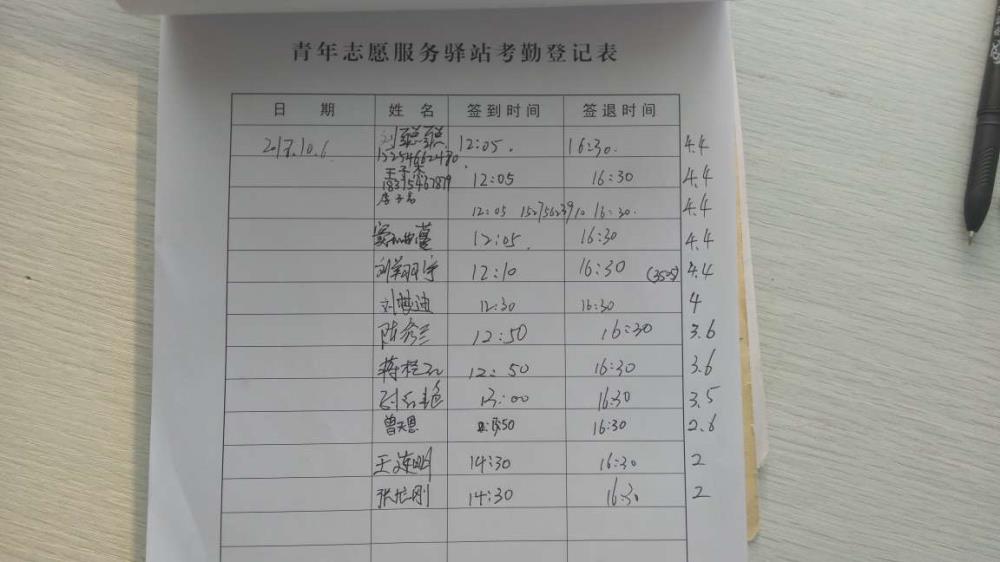 青年志愿服务驿站考勤登记表
日 期 姓 名 签到时间 签退时间
2017.10.6 刘聪聪 12:05. 16:30. 4.4
王子杰 12:05 16:30 4.4
18375467879
12:05 16:30. 4.4
12:05. 16:30 4.4
刘翔宇 12:10 16:30 4.4
刘梦迪 12:30 16:30 4
陈秀兰 12:50 16:30 3.6
蒋 12:50 16:30 3.6
刘 13:00 16:30 3.5
曾天恩 50 16:30 2.6
王 14:30 16:30 2
张 刚 14:30 16:30 2